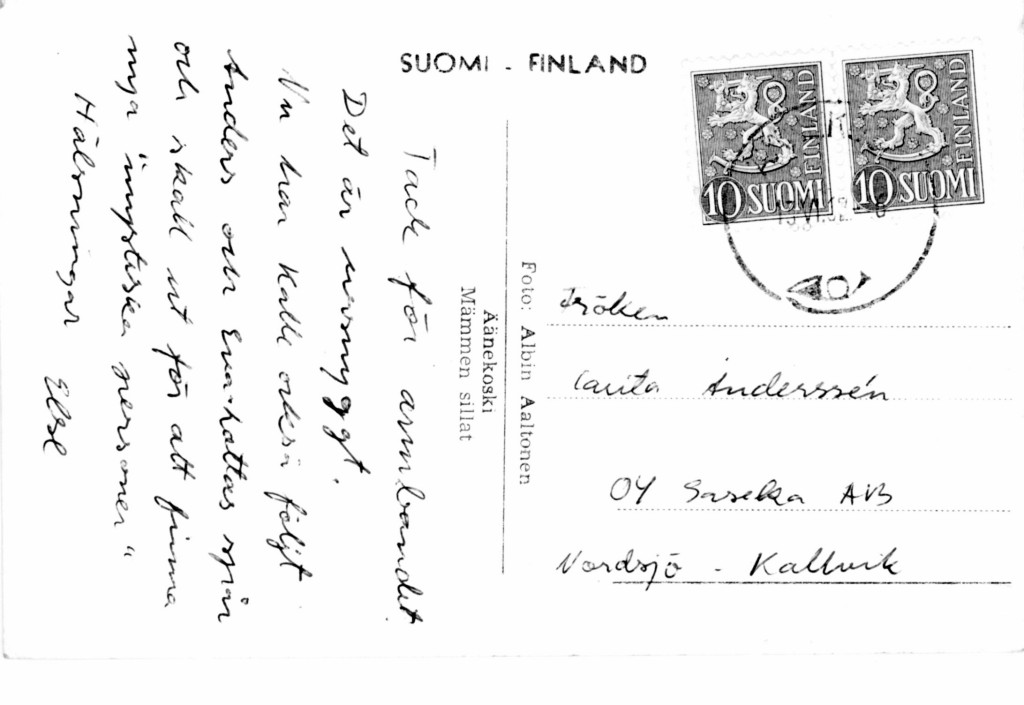 SUOMI - FINLAND
Tack för armbandet
Det är ursnyggt.
Nu har Kalle också följt
Anders och Eva-Lottas spår
och skall ut för att finna
nya "mystiska personer"
Hälsningar Else
Äänekoski
Mämmen sillat
Foto: Albin Aaltonen
FINLAND
10 SUOMI
FINLAND
10 SUOMI
Fröken
Carita Anderssén
OY Saseka AB
Nordsjö - Kallvik